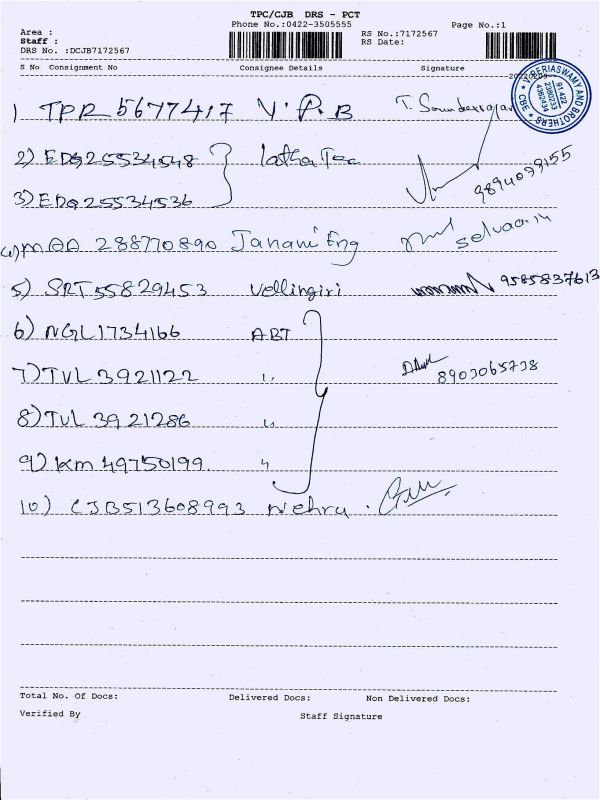 TPC/CJB DRS - PCT
Phone No.:0422-3505555
Page No.:1
Area :
Staff :
DRS No. :DCJB7172567
RS No.:7172567
RS Date:
S No Consignment No Consignee Details Signature
1 TPR 5677417 V.P.B T. Sounderrajan
2) EDQ25534548 Latha Tec
3) EDQ25534536 9894099155
4) MAA 288770890 Janani Eng
5) SRT55829453 Vellingiri 9585837613
6) NGL1734166 ABT
7) TVL 3921122 " 8903065738
8) TVL 3921286 "
9) KM 49750199 "
10) CJB513608993 Nehru
Total No. Of Docs: Delivered Docs: Non Delivered Docs:
Verified By Staff Signature